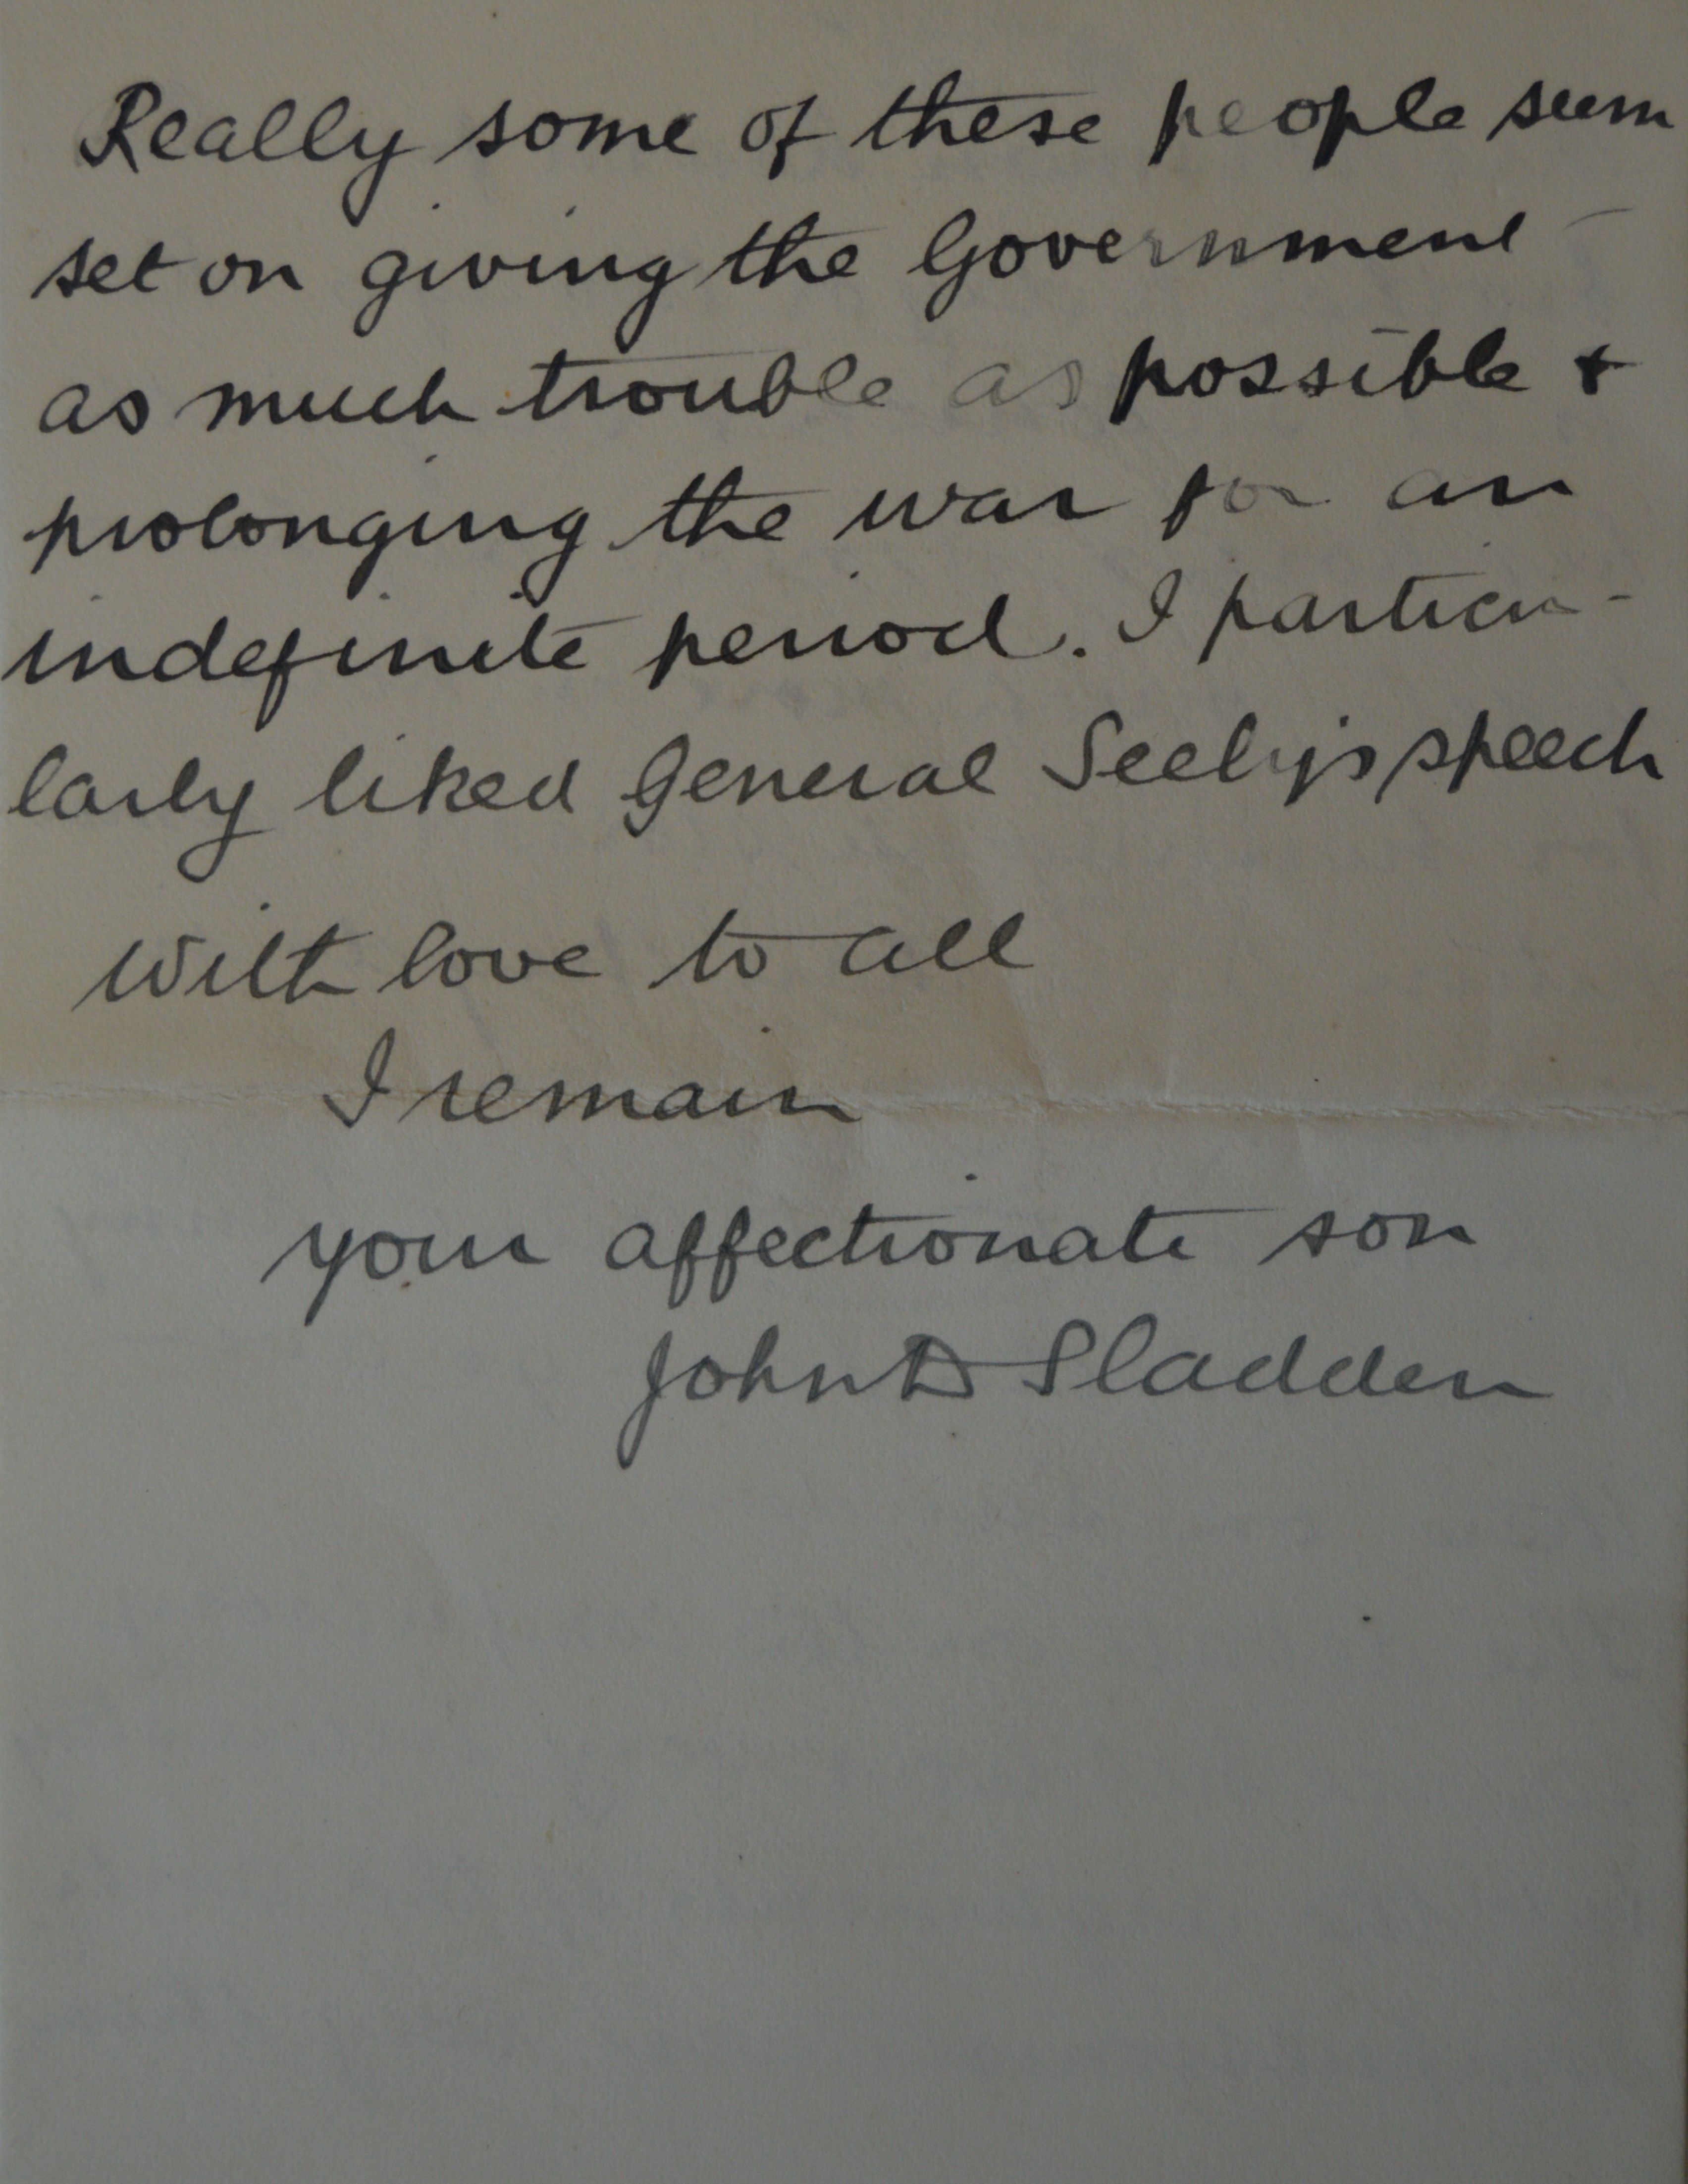 Really some of these people seem
set on giving the Government
as much trouble as possible &
prolonging the war for an
indefinite period. I particu-
larly liked General Seely's speech
With love to all
I remain
your affectionate son
John D Sladden